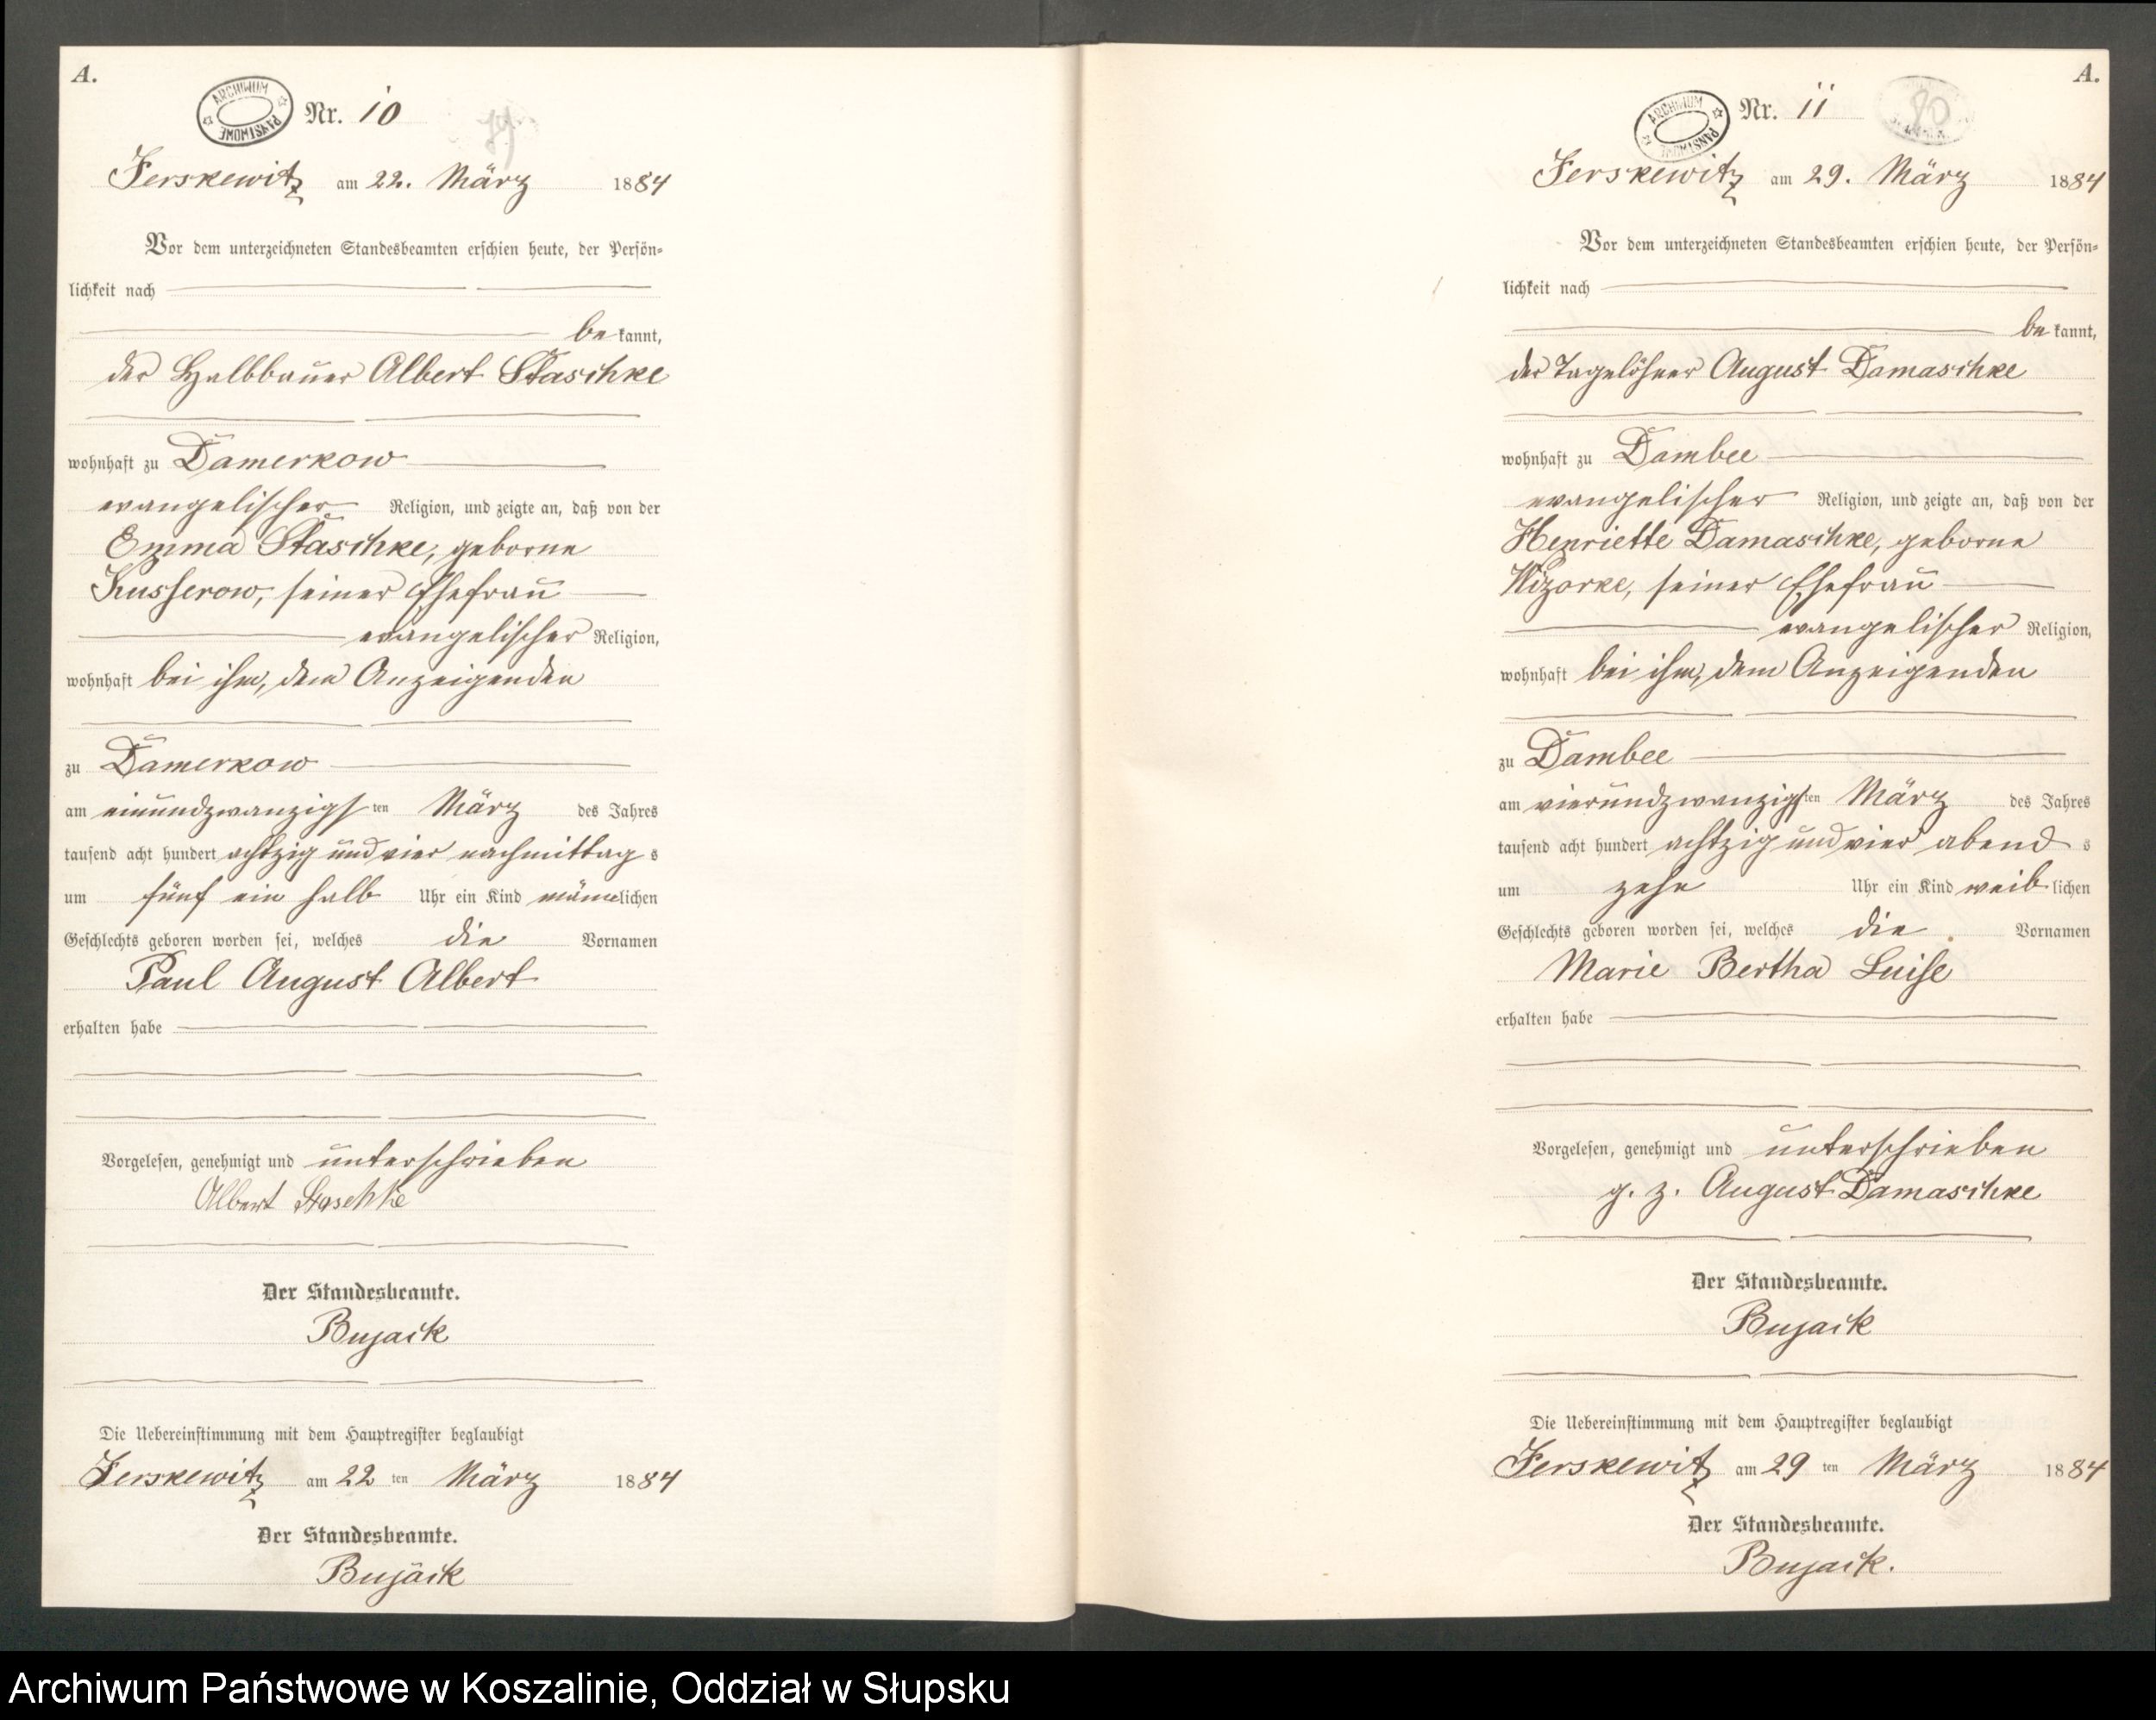 A.
ARCHIWUM PAŃSTWOWE
Nr. 10
79
Jerskewitz am 22. März 1884
Vor dem unterzeichneten Standesbeamten erschien heute, der Persön-
lichkeit nach
be kannt,
der Halbbauer Albert Staschke
wohnhaft zu Damerkow
evangelischer Religion, und zeigte an, daß von der
Emma Staschke, geborne
Kusserow, seiner Ehefrau
evangelischer Religion,
wohnhaft bei ihm, dem Anzeigenden
zu Damerkow
am einundzwanzigsten März des Jahres
tausend acht hundert achtzig und vier nachmittags
um fünf ein halb Uhr ein Kind männlichen
Geschlechts geboren worden sei, welches die Vornamen
Paul August Albert
erhalten habe
Vorgelesen, genehmigt und unterschrieben
Albert Staschke
Der Standesbeamte.
Bujack
Die Uebereinstimmung mit dem Hauptregister beglaubigt
Jerskewitz am 22 ten März 1884
Der Standesbeamte.
Bujack
A.
ARCHIWUM PAŃSTWOWE
Nr. 11
80
Jerskewitz am 29. März 1884
Vor dem unterzeichneten Standesbeamten erschien heute, der Persön-
lichkeit nach
be kannt,
der Tagelöhner August Damaschke
wohnhaft zu Dambee
evangelischer Religion, und zeigte an, daß von der
Henriette Damaschke, geborne
Wizorke, seiner Ehefrau
evangelischer Religion,
wohnhaft bei ihm, dem Anzeigenden
zu Dambee
am vierundzwanzigsten März des Jahres
tausend acht hundert achtzig und vier abends
um zehn Uhr ein Kind weiblichen
Geschlechts geboren worden sei, welches die Vornamen
Marie Bertha Luise
erhalten habe
Vorgelesen, genehmigt und unterschrieben
g. z. August Damaschke
Der Standesbeamte.
Bujack
Die Uebereinstimmung mit dem Hauptregister beglaubigt
Jerskewitz am 29 ten März 1884
Der Standesbeamte.
Bujack.
Archiwum Państwowe w Koszalinie, Oddział w Słupsku